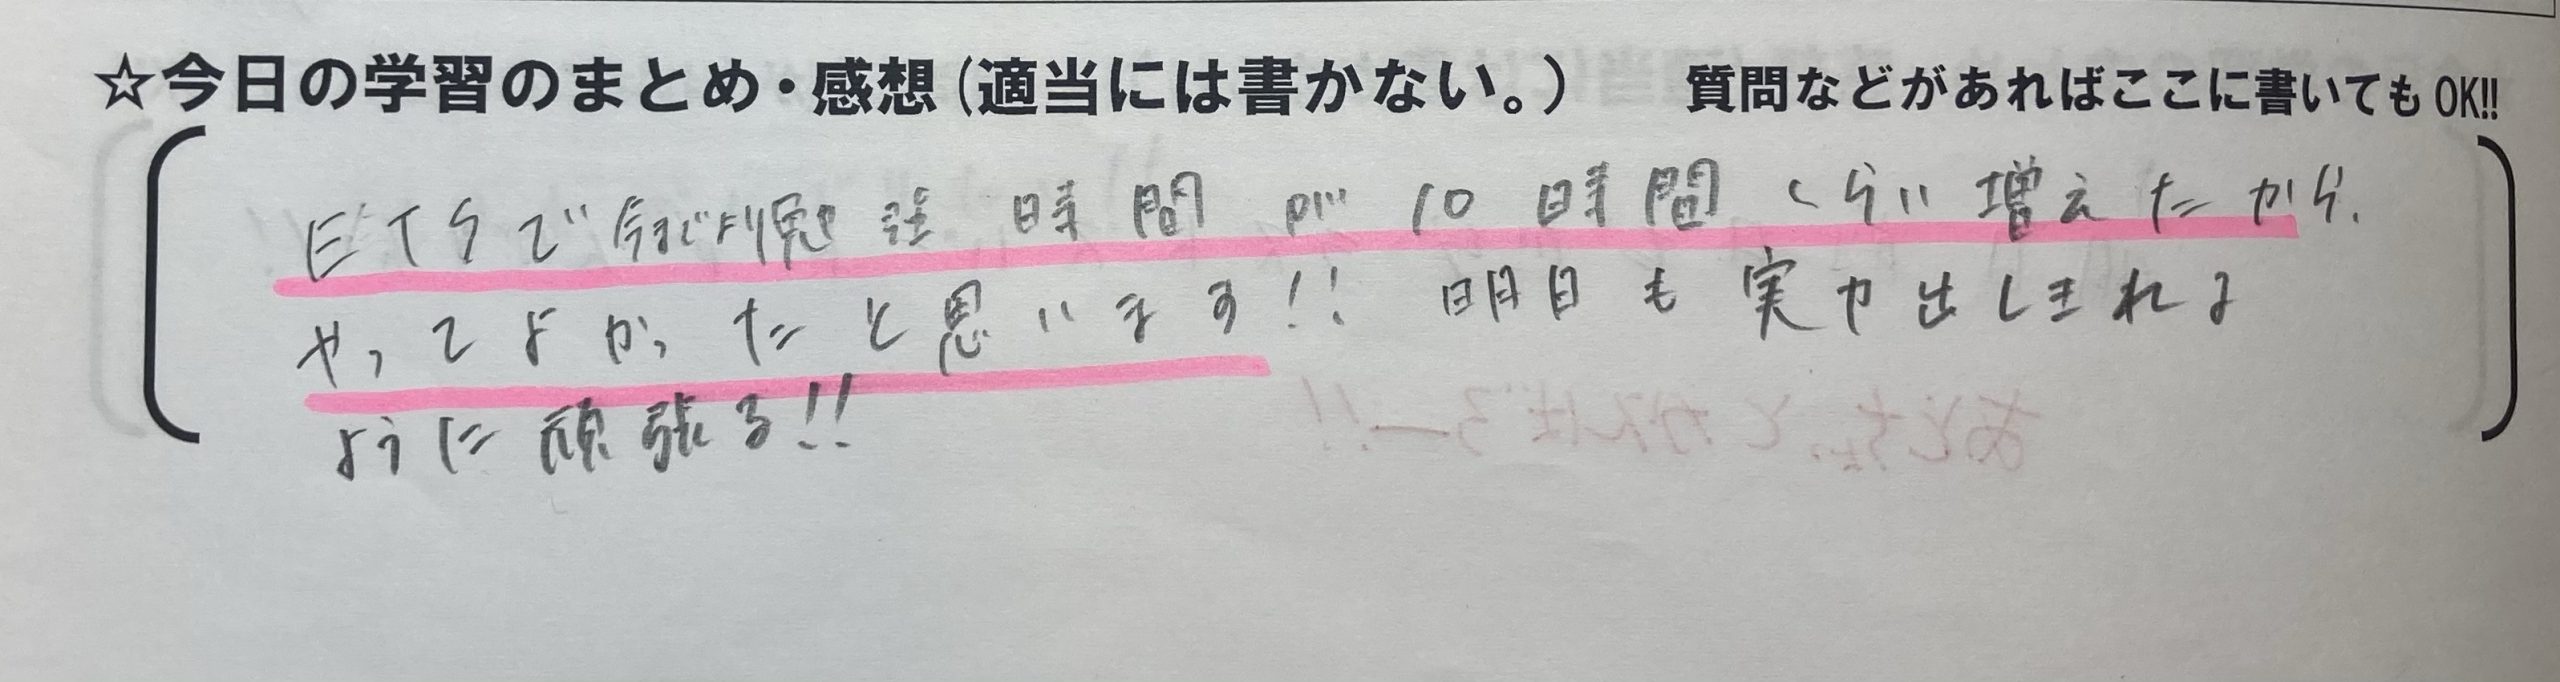 ☆今日の学習のまとめ・感想（適当には書かない。） 質問などがあればここに書いてもOK!!
ETSで今までより勉強時間が10時間くらい増えたから、
やってよかったと思います!! 明日も実力出しきれる
ように頑張る!!
あとちょっとがんばろー!!